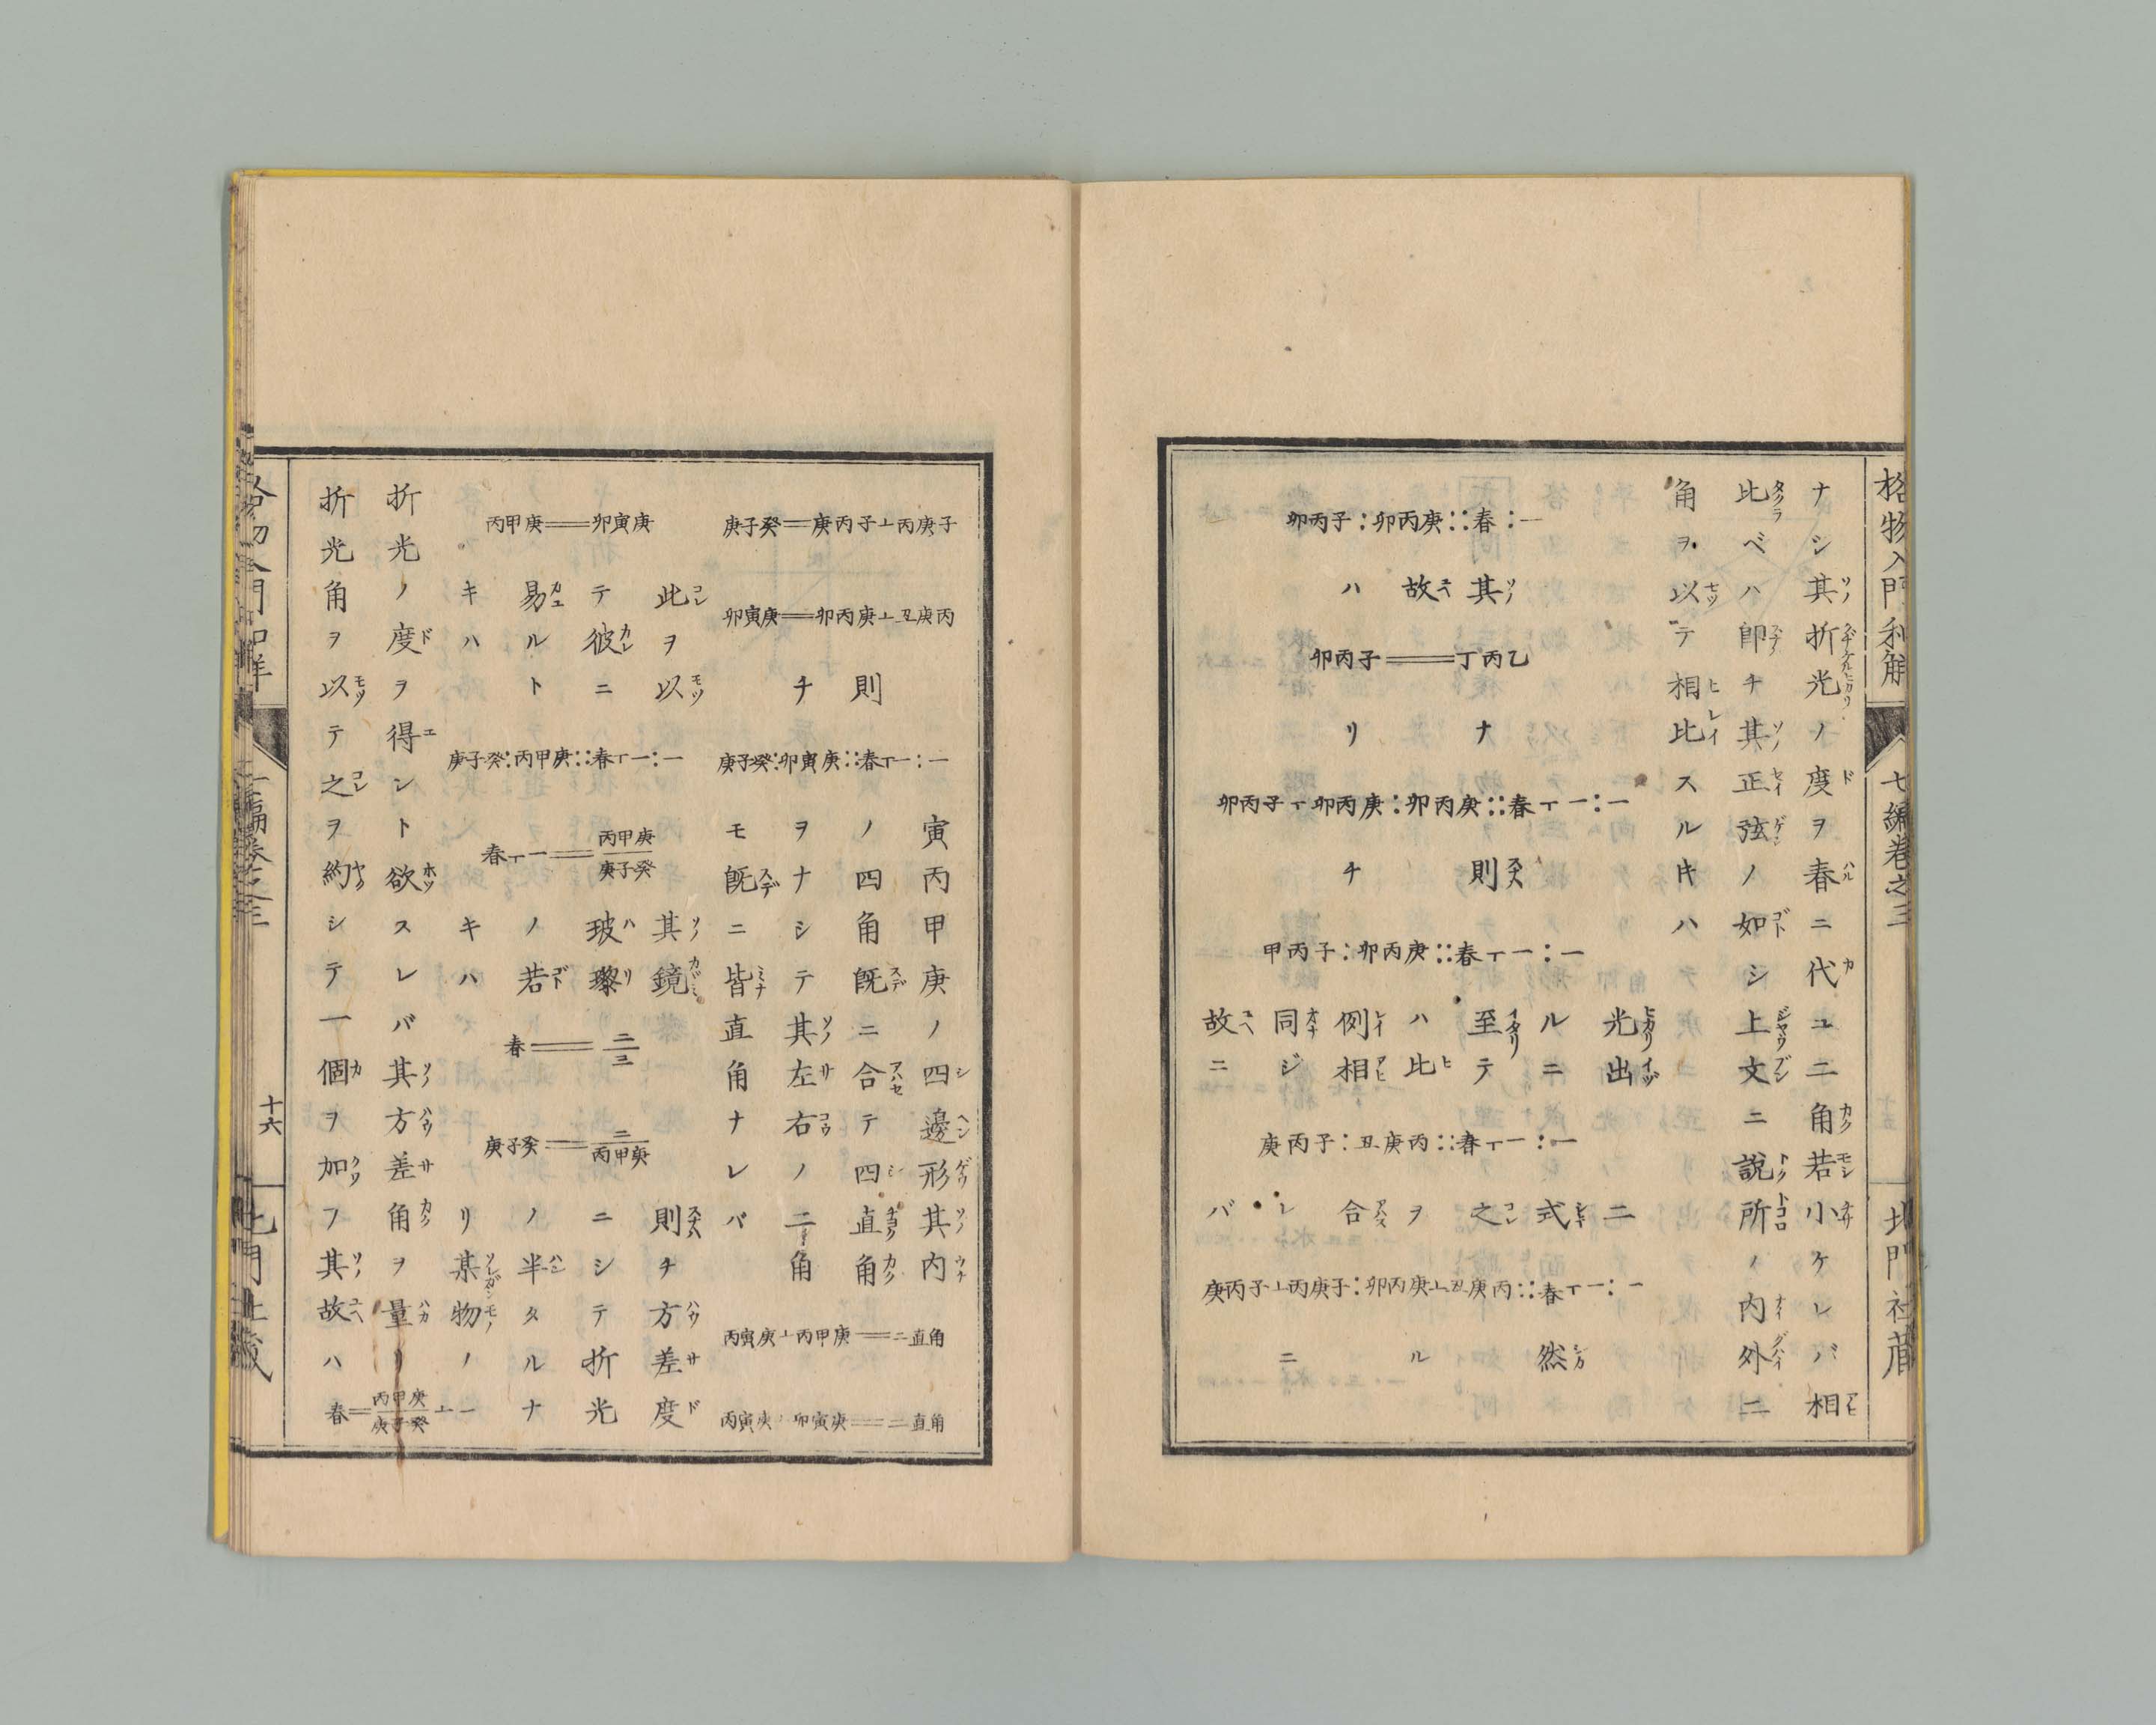 格物入門和解 七編巻之三 北門社蔵
ナシ其折光ノ度ヲ春ニ代ユ二角若小ケレバ相
比ベハ卽チ其正弦ノ如シ上文ニ説所ノ内外二
角ヲ以テ相比スルキハ
卯丙子:卯丙庚::春:一
其故ハ
卯丙子＝丁丙乙
ナリ
卯丙子ㄒ卯丙庚:卯丙庚::春ㄒ一:一
則チ
甲丙子:卯丙庚::春ㄒ一:一
光出ルニ至テハ比例相同ジ故ニ
庚丙子:丑庚丙::春ㄒ一:一
二式之ヲ合レバ
庚丙子⊥丙庚子:卯丙庚⊥丑庚丙::春ㄒ一:一
然ルニ
庚子癸＝庚丙子⊥丙庚子
卯寅庚＝卯丙庚⊥丑庚丙
則チ
庚子癸:卯寅庚::春ㄒ一:一
寅丙甲庚ノ四邊形其内
ノ四角既ニ合テ四直角
ヲナシテ其左右ノ二角
モ既ニ皆直角ナレバ
丙寅庚⊥丙甲庚＝二直角
丙寅庚⊥卯寅庚＝二直角
丙甲庚＝卯寅庚
此ヲ以テ彼ニ易ルトキハ
庚子癸:丙甲庚::春ㄒ一:一
春ㄒ一＝丙甲庚/庚子癸
其鏡玻瓈ノ若キハ
春＝二/三
庚子癸＝二/丙甲庚
則チ方差度ニシテ折光ノ半タルナリ某物ノ
折光ノ度ヲ得ント欲スレバ其方差角ヲ量リ
折光角ヲ以テ之ヲ約シテ一個ヲ加フ其故ハ
春＝丙甲庚/庚子癸⊥一
十六